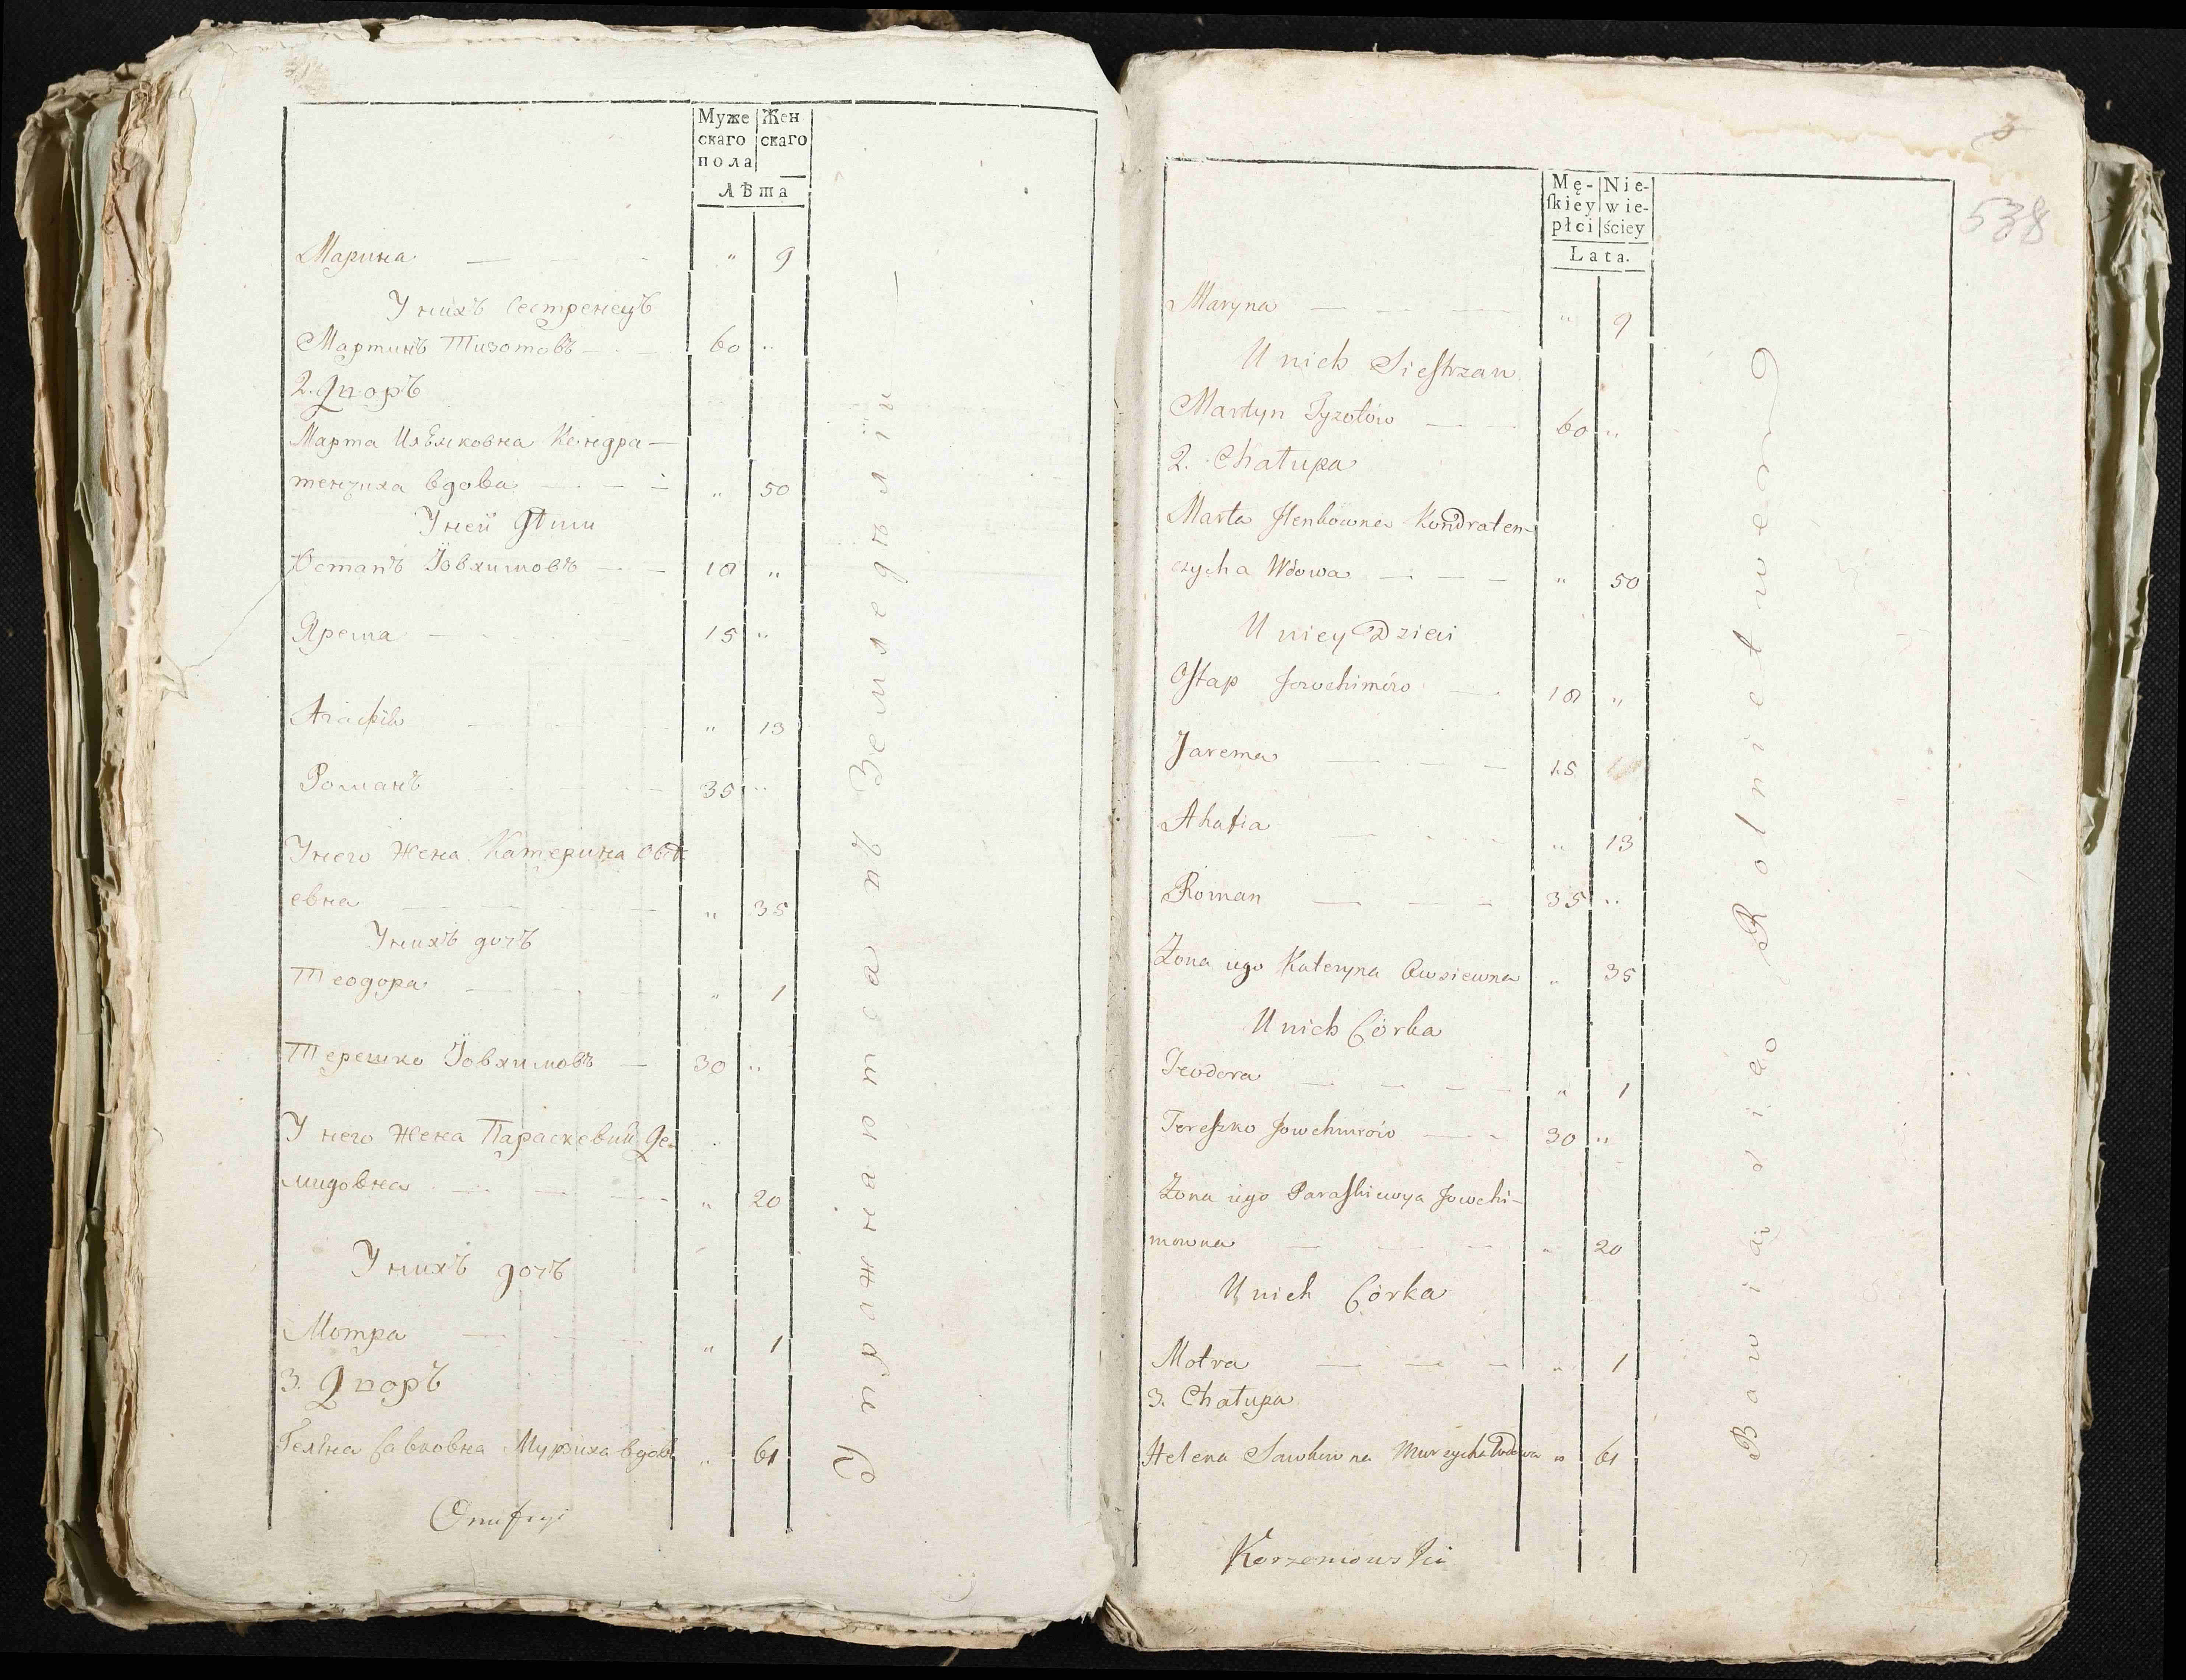 Муже Жен
скаго скаго
пола
Лѣта
Марина — — — " 9
У нихъ Сестренецъ
Мартинъ Тизотовъ — — 60 "
2. Дворъ
Марта Илѣнковна Кондра—
тенчиха вдова — — " 50
У ней Дѣти
Остапъ Іовхимовъ — — 18 "
Ярема — — 15 "
— " 13
Романъ — — 35 "
У него Жена Катерина Овсѣ
евна — — — " 35
У нихъ дочъ
Теодора — — — " 1
Терешко Іовхимовъ — 30 "
У него Жена Параскевия Де-
мидовна — — — " 20
У нихъ дочъ
Мотра — — — " 1
3. Дворъ
Гелѣна Савковна Мурзиха вдова " 61
Onufryi
Упражняются въ Земледѣліи —
538
Mę- Nie-
ſkiey wie-
płci ściey
Lata.
Maryna — — — " 9
U nich Sieſtrzan
Martyn Tyzotów — — 60 "
2. Chałupa
Marta Ilenkowna Kondraten-
czycha Wdowa — — — " 50
U niey Dzieci
Oſtap Jowchimów — 18 "
Jarema — — — 15
Ahafia — — — " 13
Roman — — — 35 "
Zona iego Kateryna Owsiewna " 35
U nich Córka
Teodora — — — — " 1
Tereſzko Jowchimów — - 30 "
Zona iego Paraſkiewya Jowchi-
mowna — — — " 20
U nich Córka
Motra — — — " 1
3. Chałupa
Helena Sawkowna Murzycha Wdowa " 61
Korzeniowski
Bawią się Rolnictwem